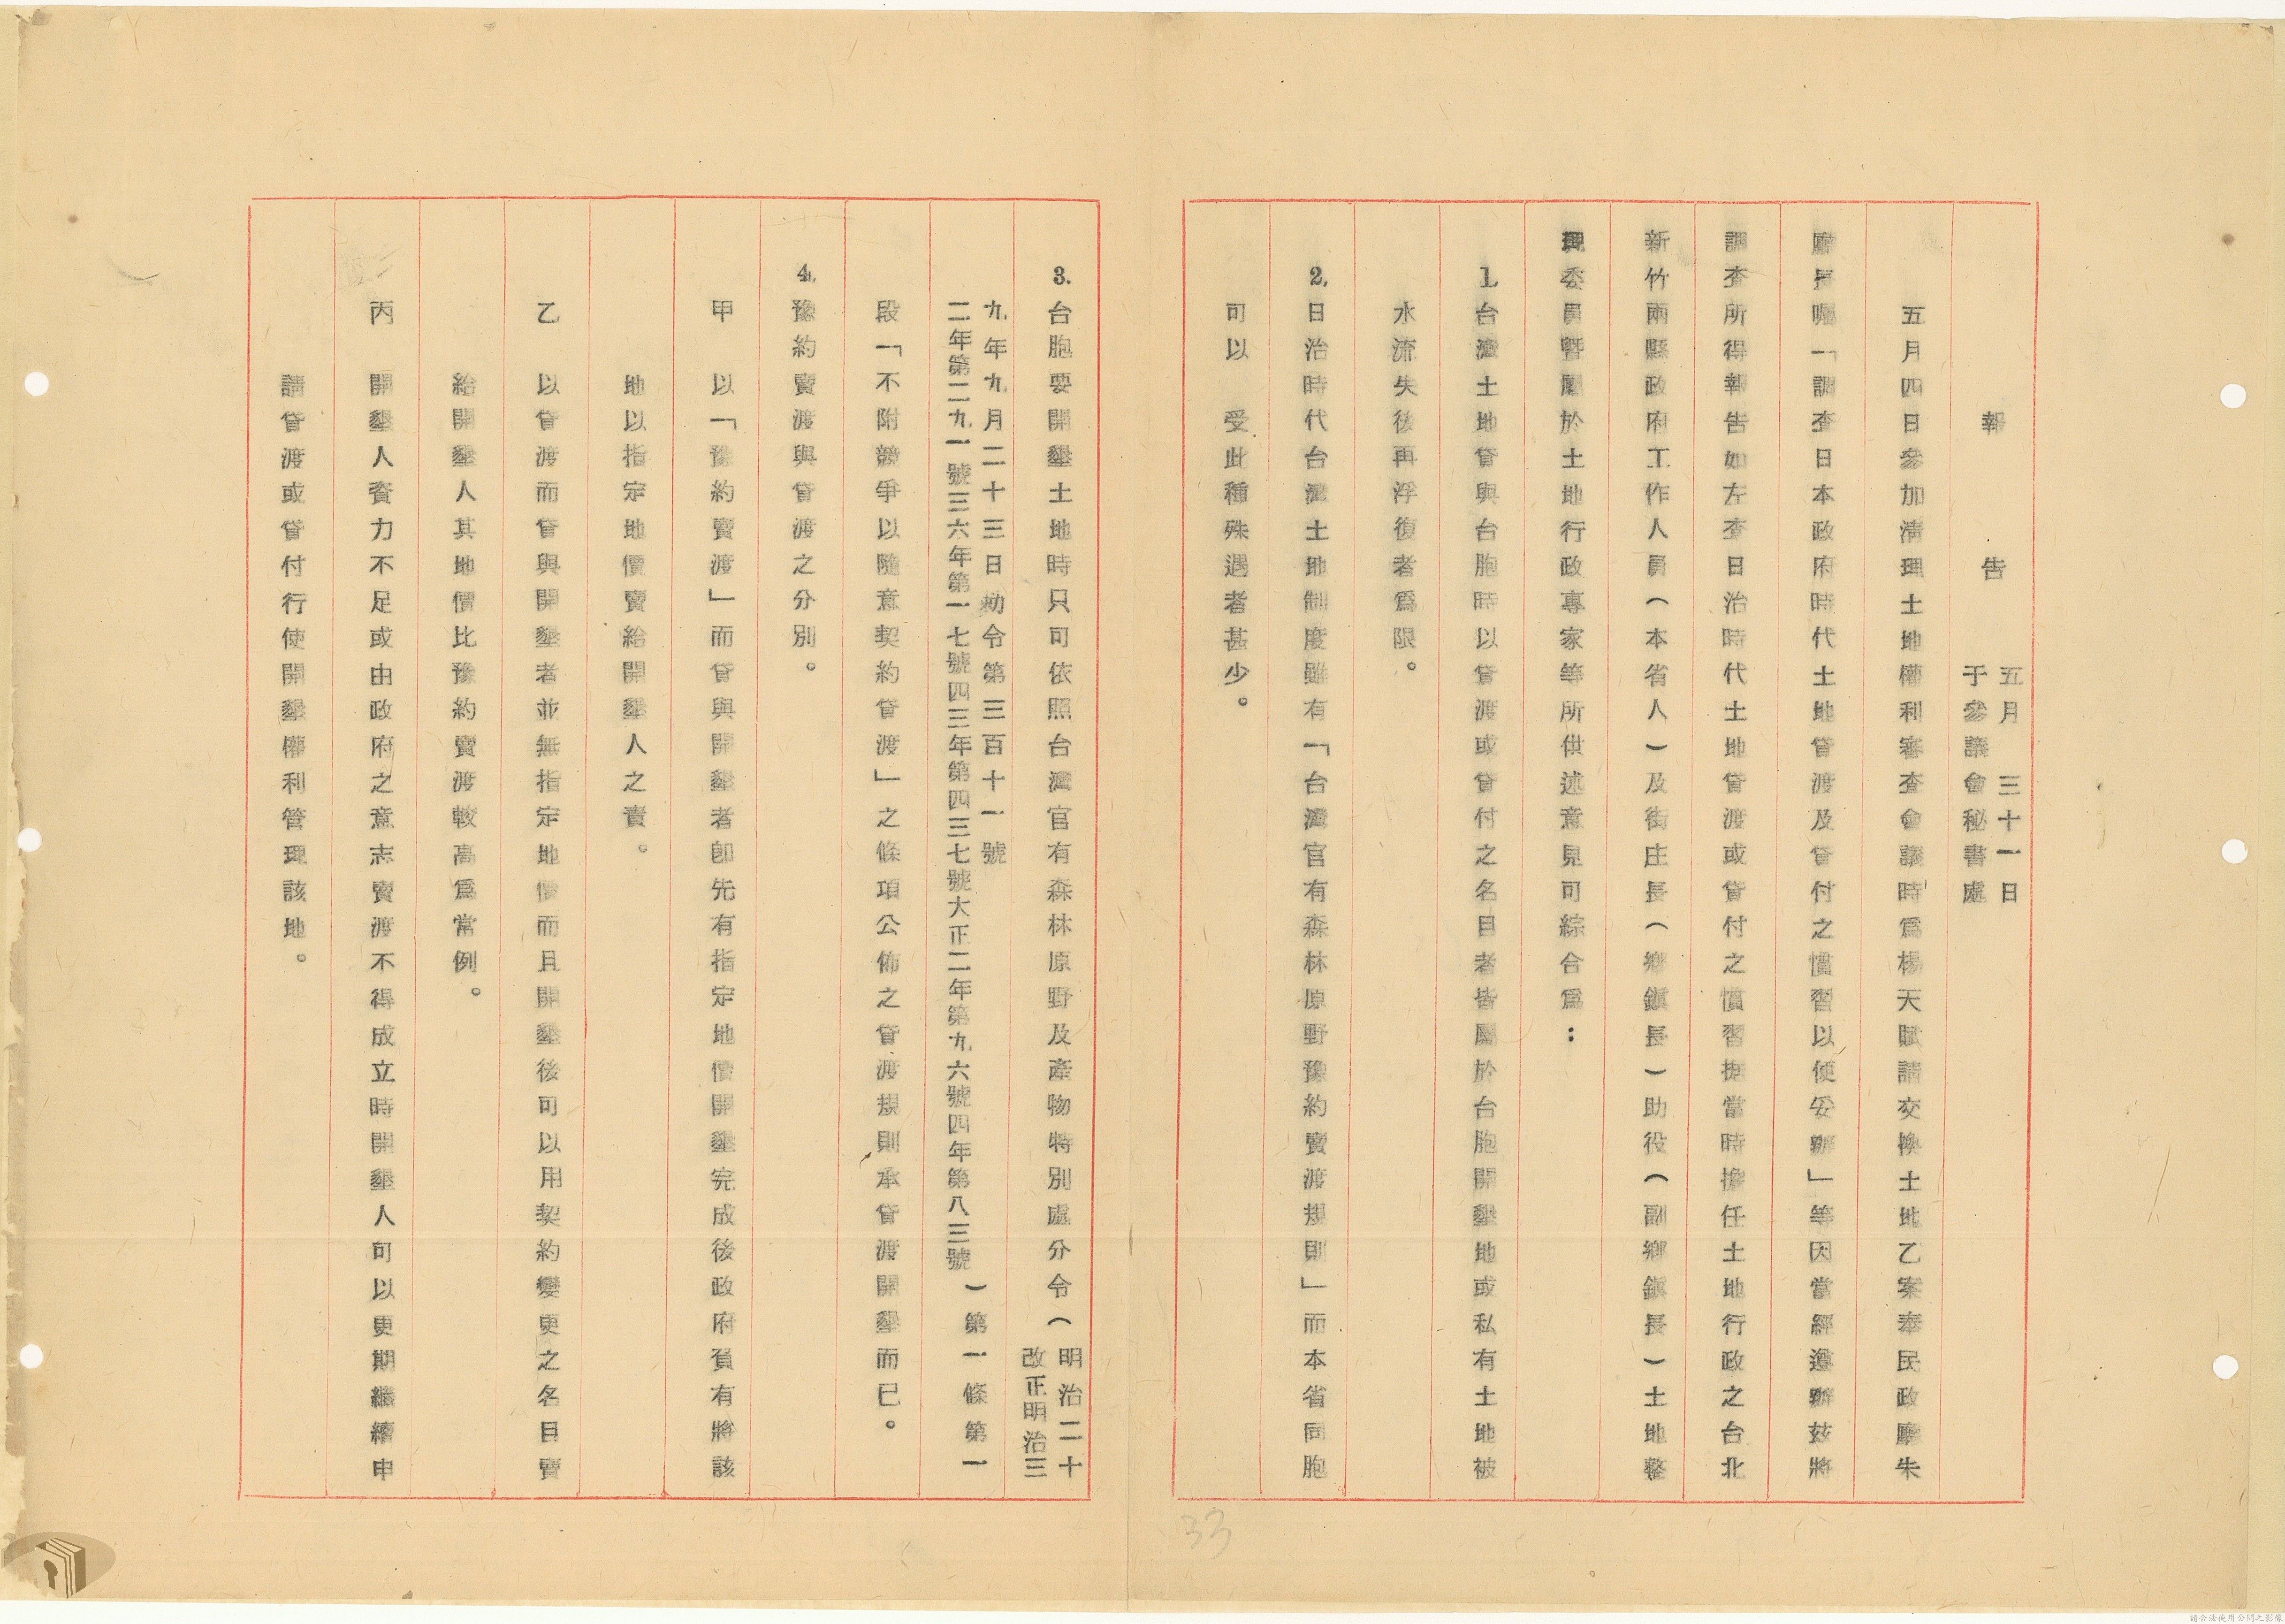 報告 五月三十一日
于參議會秘書處
五月四日參加清理土地權利審查會議時爲楊天賦請交換土地乙案奉民政廳朱
廳長囑「調查日本政府時代土地貸渡及貸付之慣習以便妥辦」等因當經遵辦茲將
調查所得報告如左查日治時代土地貸渡或貸付之慣習据當時擔任土地行政之台北
新竹兩縣政府工作人員(本省人)及街庄長(鄉鎭長)助役(副鄉鎭長)土地整
理委員暨屬於土地行政專家等所供述意見可綜合爲:
1.台灣土地貸與台胞時以貸渡或貸付之名目者皆屬於台胞開墾地或私有土地被
水流失後再浮復者爲限。
2.日治時代台灣土地制度雖有「台灣官有森林原野豫約賣渡規則」而本省同胞
可以 受此種殊遇者甚少。
3.台胞要開墾土地時只可依照台灣官有森林原野及產物特別處分令(明治二十
九年九月二十三日勅令第三百十一號
改正明治三
二年第二九一號三六年第一七號四三年第四三七號大正二年第九六號四年第八三號)第一條第一
段「不附競爭以隨意契約貸渡」之條項公佈之貸渡規則承貸渡開墾而已。
4.豫約賣渡與貸渡之分別。
甲 以「豫約賣渡」而貸與開墾者卽先有指定地價開墾完成後政府負有將該
地以指定地價賣給開墾人之責。
乙 以貸渡而貸與開墾者並無指定地價而且開墾後可以用契約變更之名目賣
給開墾人其地價比豫約賣渡較高爲常例。
丙 開墾人資力不足或由政府之意志賣渡不得成立時開墾人可以更期繼續申
請貸渡或貸付行使開墾權利管理該地。
33
請合法使用公開之影像